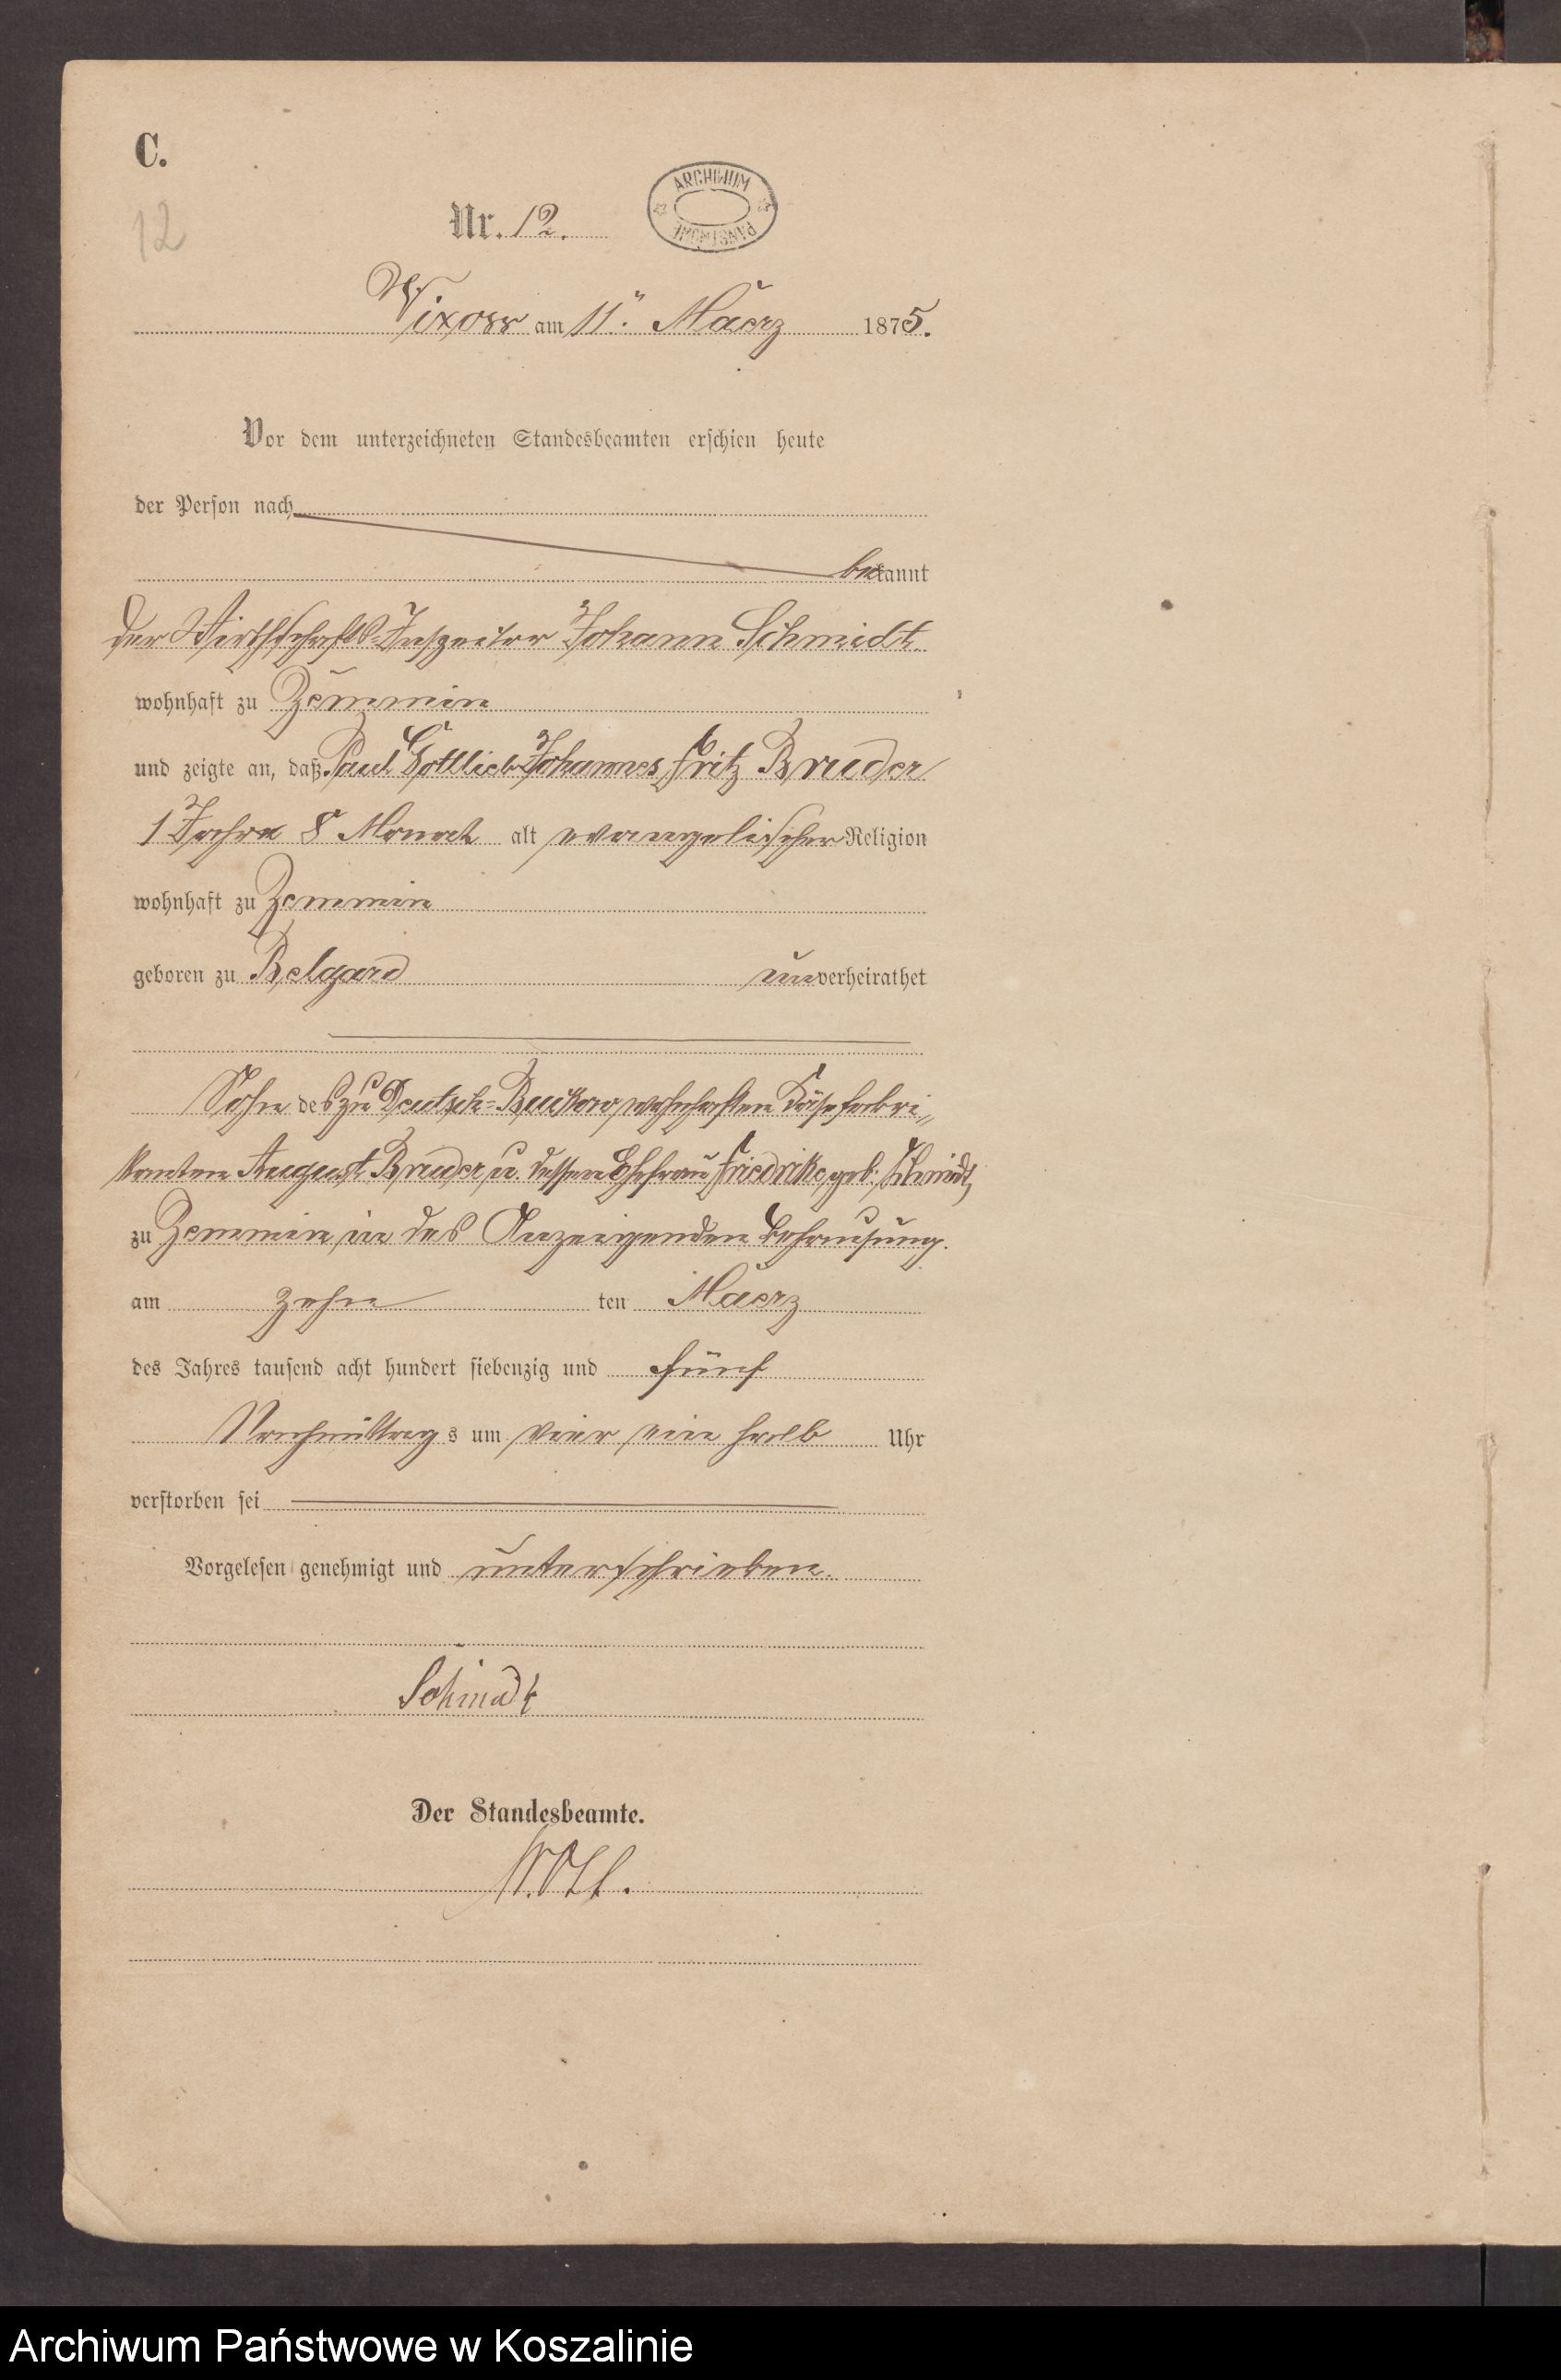 C.
12
Nr. 12.
ARCHIWUM PAŃSTWOWE
Wixow am 11. Maerz 1875.
Vor dem unterzeichneten Standesbeamten erschien heute
der Person nach
bekannt
der Wirthschafts-Inspector Johann Schmidt
wohnhaft zu Zemmin
und zeigte an, daß Paul Gottlieb Johannes Fritz Bruder
1 Jahr 8 Monat alt evangelischer Religion
wohnhaft zu Zemmin
geboren zu Belgard unverheirathet
Sohn des zu Deutsch-Buckow wohnhaften Käsefabri-
kanten August Bruder u. dessen Ehefrau Friedrike geb. Schmidt,
zu Zemmin in des Anzeigenden Behausung.
am zehn ten Maerz
des Jahres tausend acht hundert siebenzig und fünf
Nachmittags um vier ein halb Uhr
verstorben sei
Vorgelesen genehmigt und unterschrieben.
Schmidt
Der Standesbeamte.
Archiwum Państwowe w Koszalinie